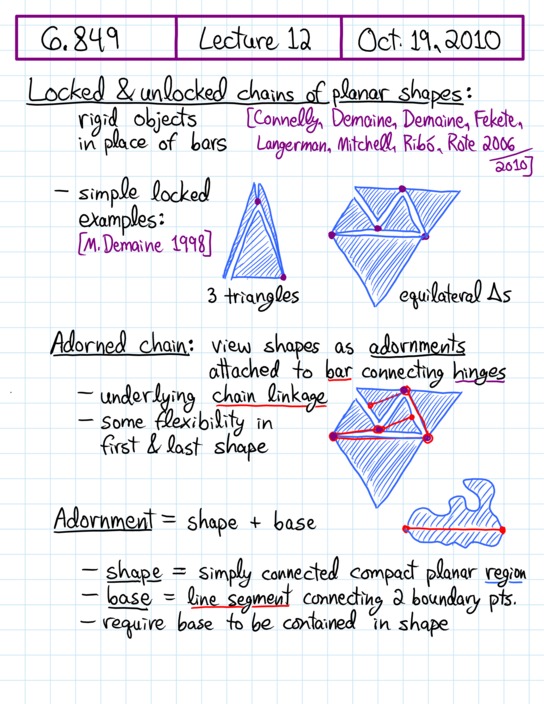 6.849 Lecture 12 Oct. 19, 2010
Locked & unlocked chains of planar shapes:
rigid objects [Connelly, Demaine, Demaine, Fekete,
in place of bars Langerman, Mitchell, Ribó, Rote 2006/2010]
– simple locked
examples:
[M. Demaine 1998]
3 triangles equilateral Δs
Adorned chain: view shapes as adornments
attached to bar connecting hinges
– underlying chain linkage
– some flexibility in
first & last shape
Adornment = shape + base
– shape = simply connected compact planar region
– base = line segment connecting 2 boundary pts.
– require base to be contained in shape